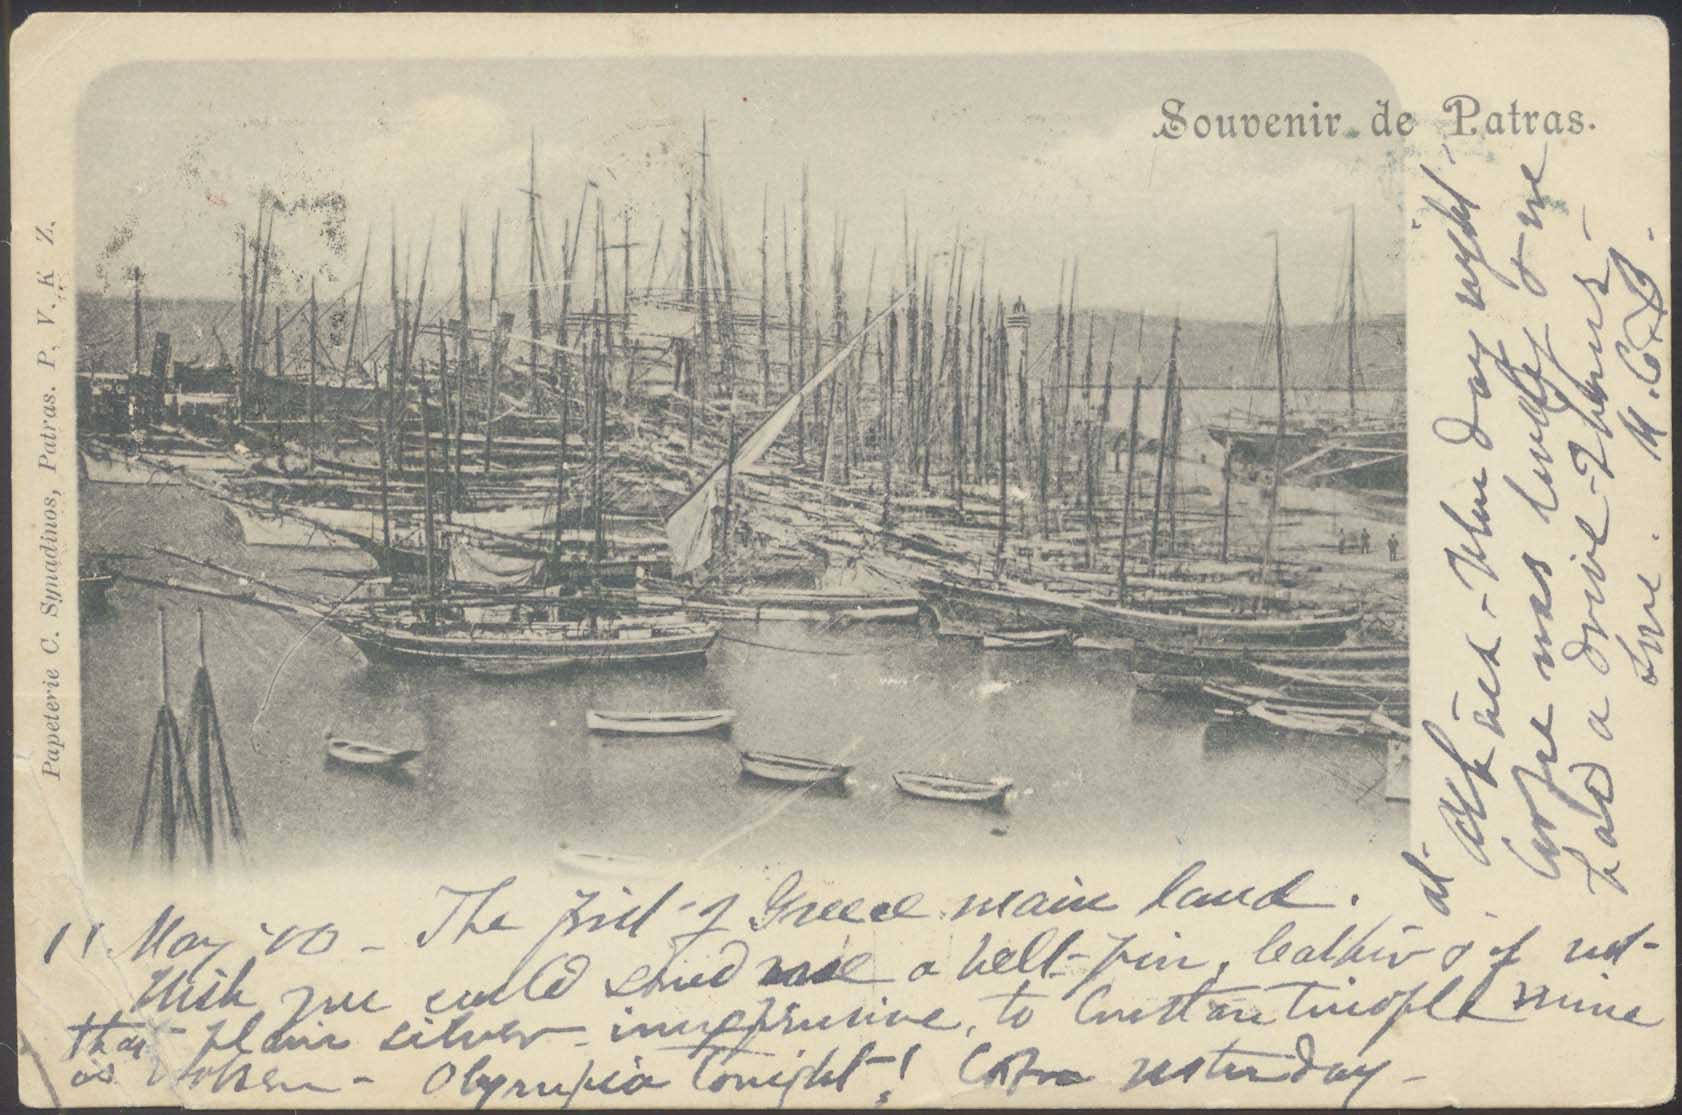 Souvenir de Patras.
Papeterie C. Synadinos, Patras. P. V. K Z.
11 May '00 – The first of Greece main land.
Wish you could send me a belt-pin, leather & if not
that plain silver – inexpensive, to Constantinople mine
is broken – Olympia tonight –! Corfu yesterday –
at
last – When day night
Corfu was lovely & we
had a drive – 2 hours –